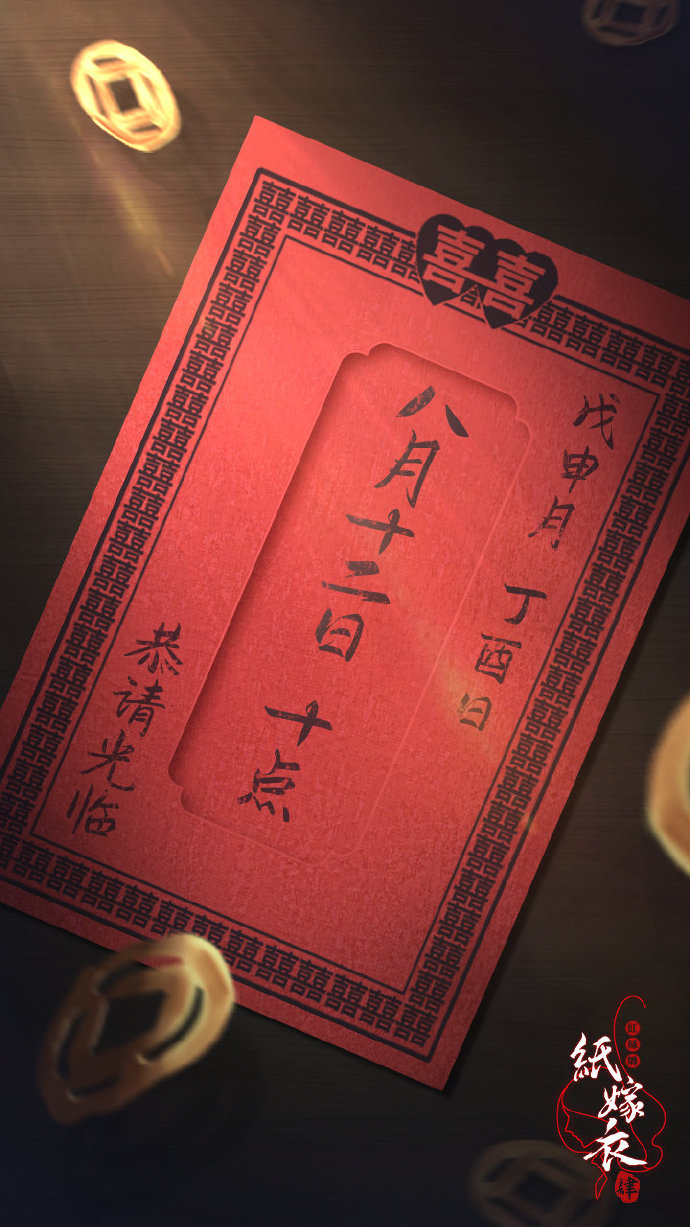 囍
戊申月 丁酉日
八月十二日 十点
恭请光临
紅絲纏
紙嫁衣
肆